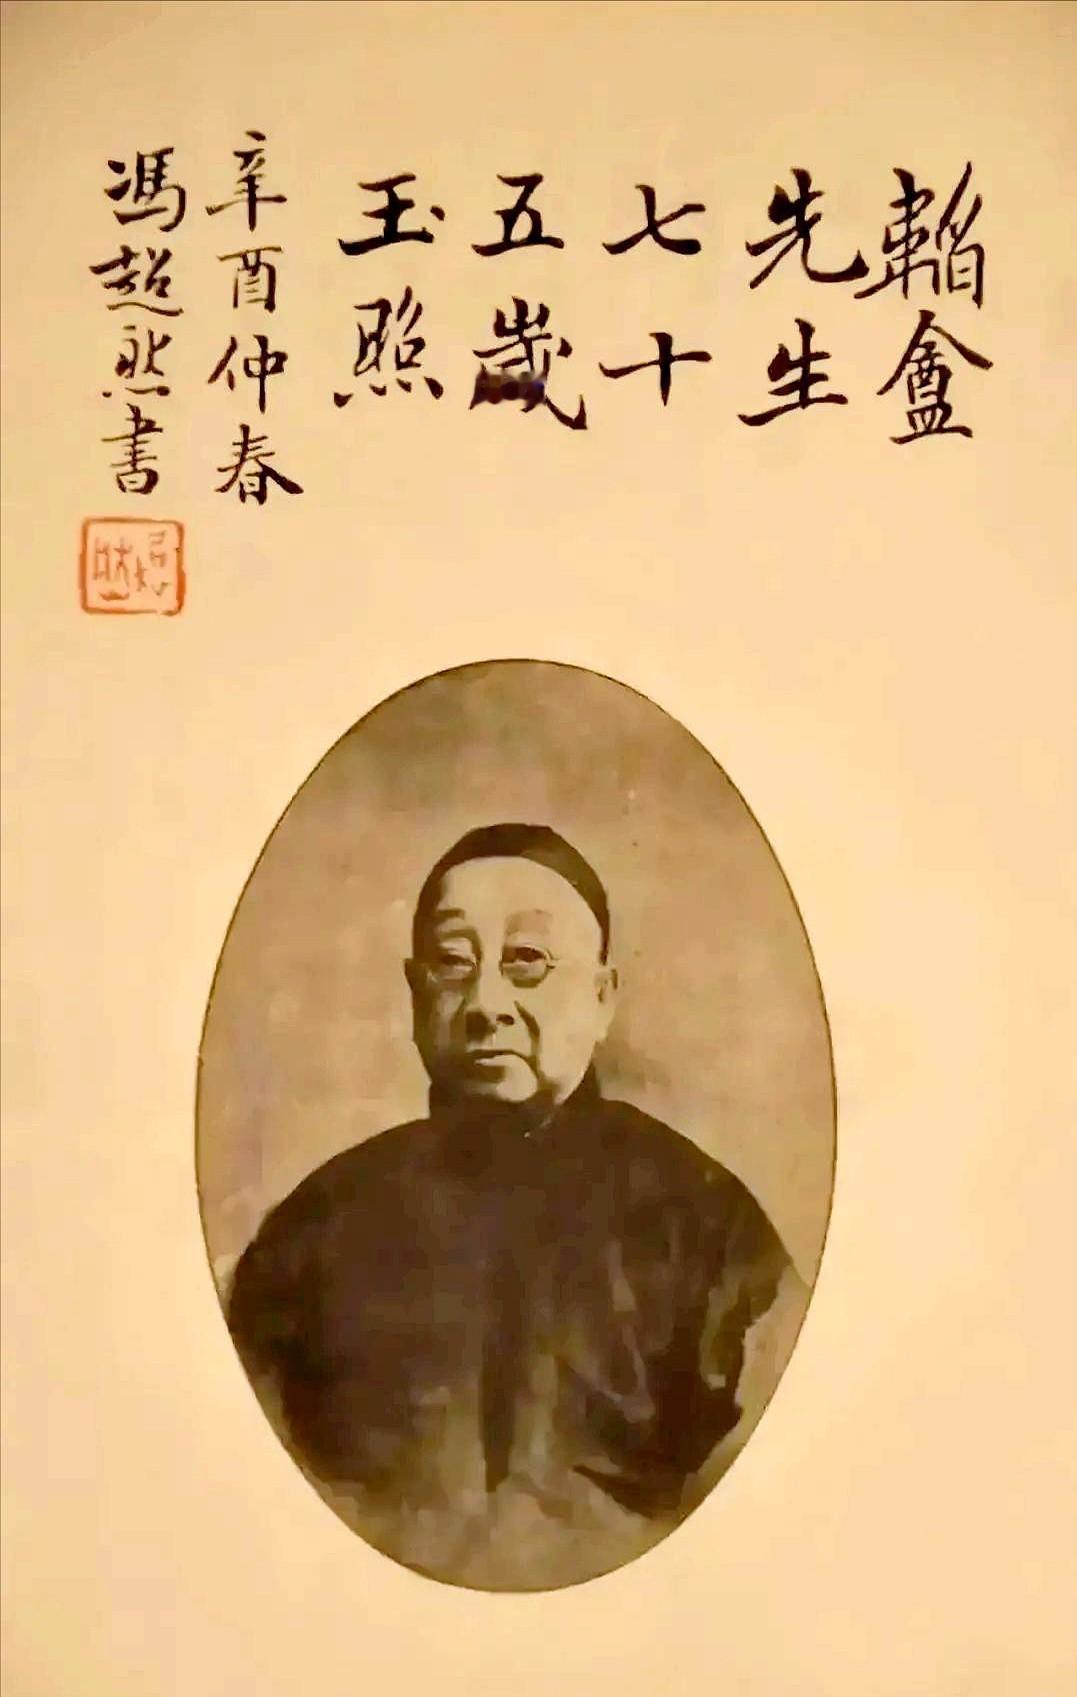 韜盦
先生
七十
五歲
玉照
辛酉仲春
馮超然書